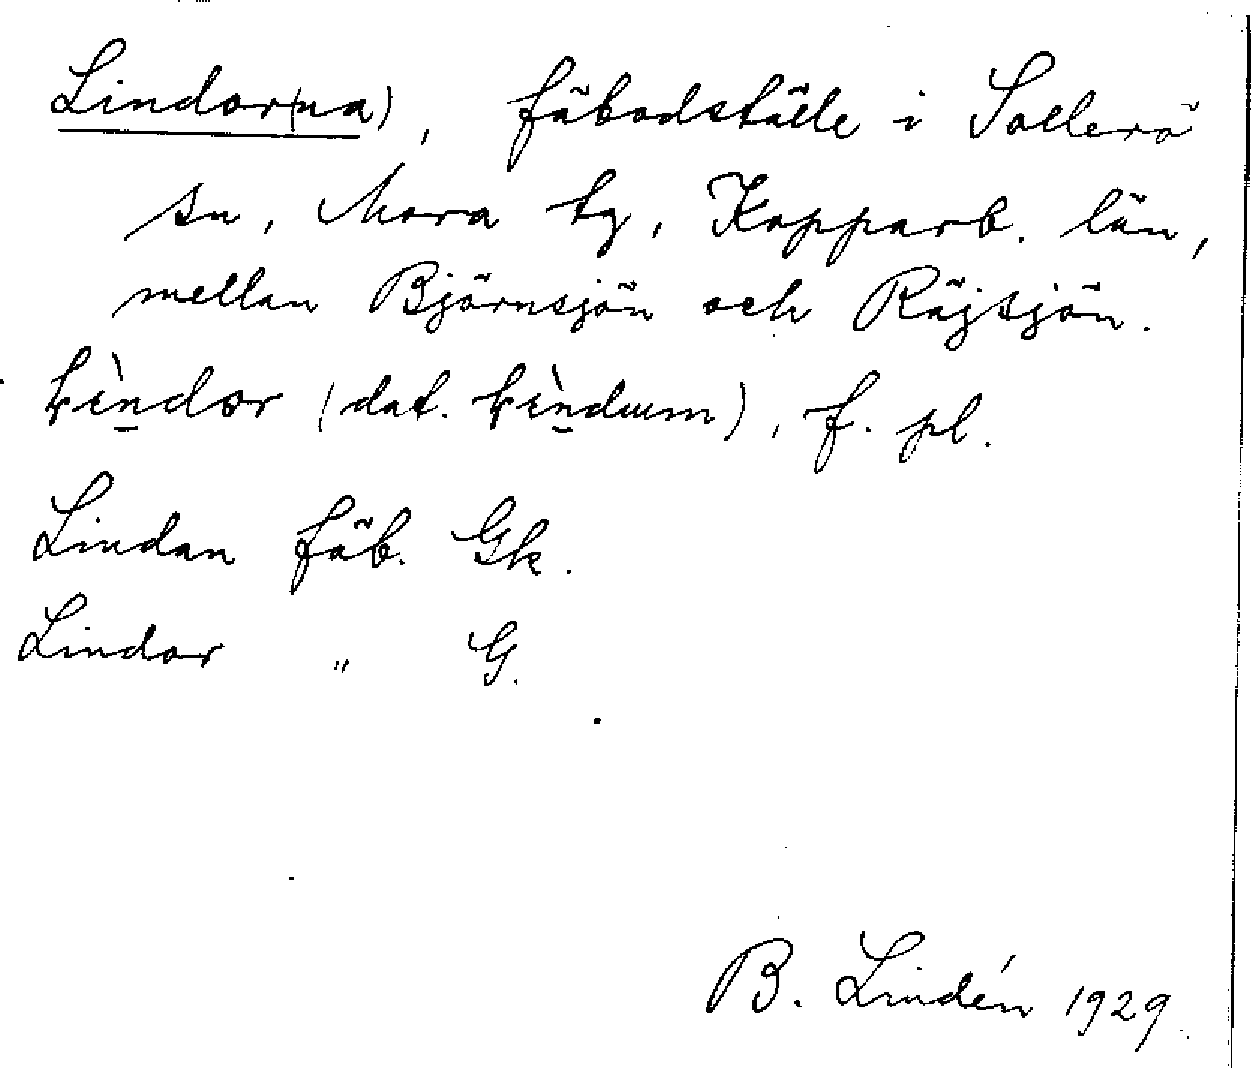 Lindor(na), fäbodställe i Sollerö
sn, Mora tg, Kopparb. län,
mellan Björnsjön och Räjsjön.
(dat. ), f. pl.
Lindan fäb. Gk.
Lindor " G.
B. Lindén 1929